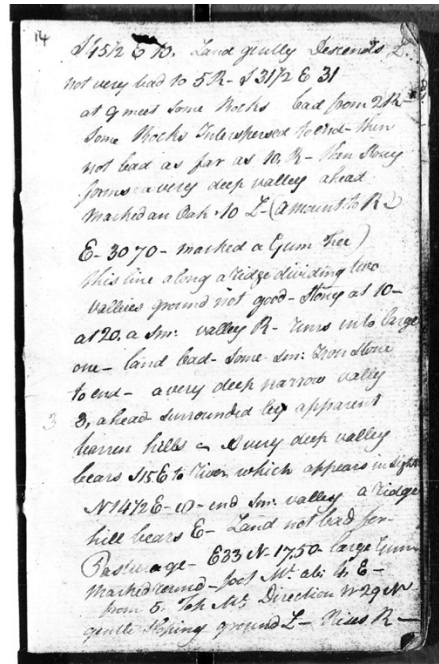 14
S 45½ E 70. Land gently Descends L.
not very bad to 5 R - S 31½ E 31
at 9 meet some Rocks bad from 2 R -
Some Rocks Interspersed to end - then
not bad as far as 10. R - then Stony
forms a very deep valley ahead
marked an Oak . 10 L - (amount to R
E - 30 70 - marked a Gum Tree)
this line along a ridge dividing two
vallies ground not good - Stony at 10 -
at 20. a Sm: valley R - runs into large
one - land bad - some Sm: Iron Stone
to end - a very deep narrow valley
3 3, ahead surrounded by apparent
barren hills - A very deep valley
bears S 15 E to River which appears in sight
N 14½ E - end Sm: valley a ridge
hill bears E - Land not bad for
Pasturage - E 33 N - 17,50 - large Gum
marked round - foot Mt. E -
from Mt. Direction W 29 N
gentle sloping ground L - Rises R -